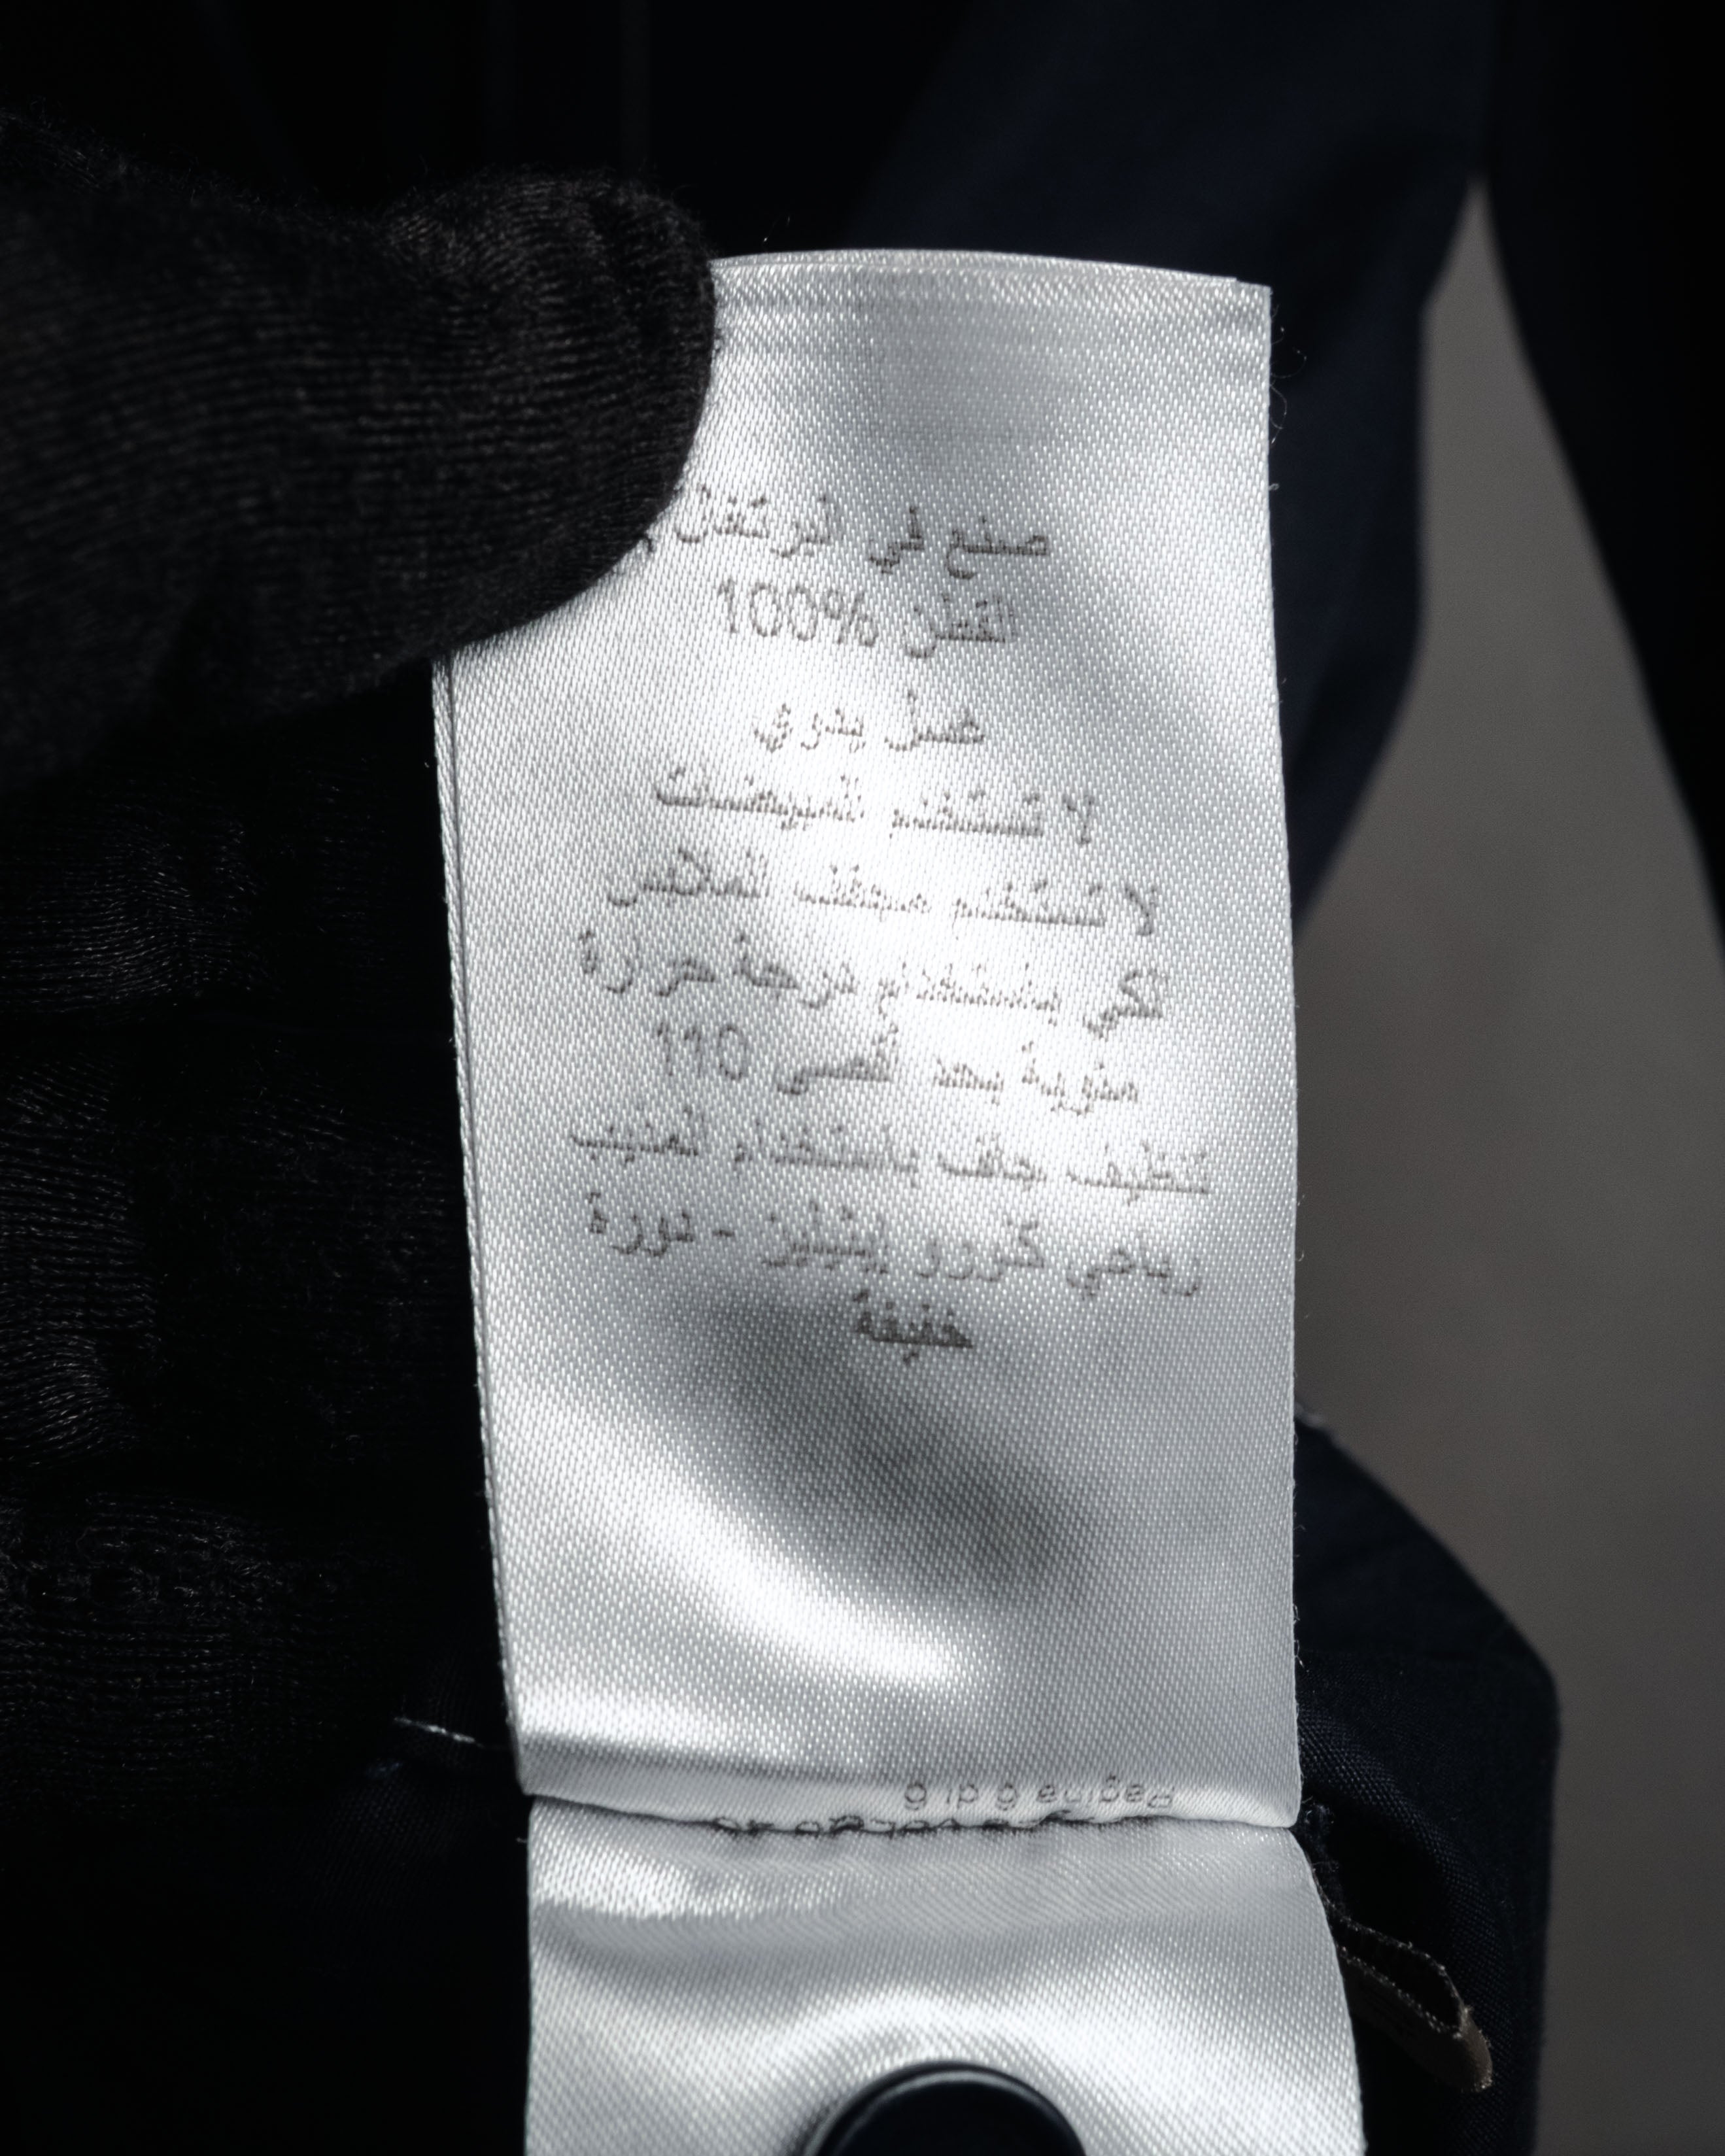 صنع في البرتغال
100% القطن
غسل يدوي
لا تستخدم المبيضات
لا تستخدم مجفف الملابس
تكوي باستخدام درجة حرارة
مئوية بحد أقصى 110
تنظيف جاف باستخدام المذيب
رباعي كلورو إيثيلين - دورة
خفيفة